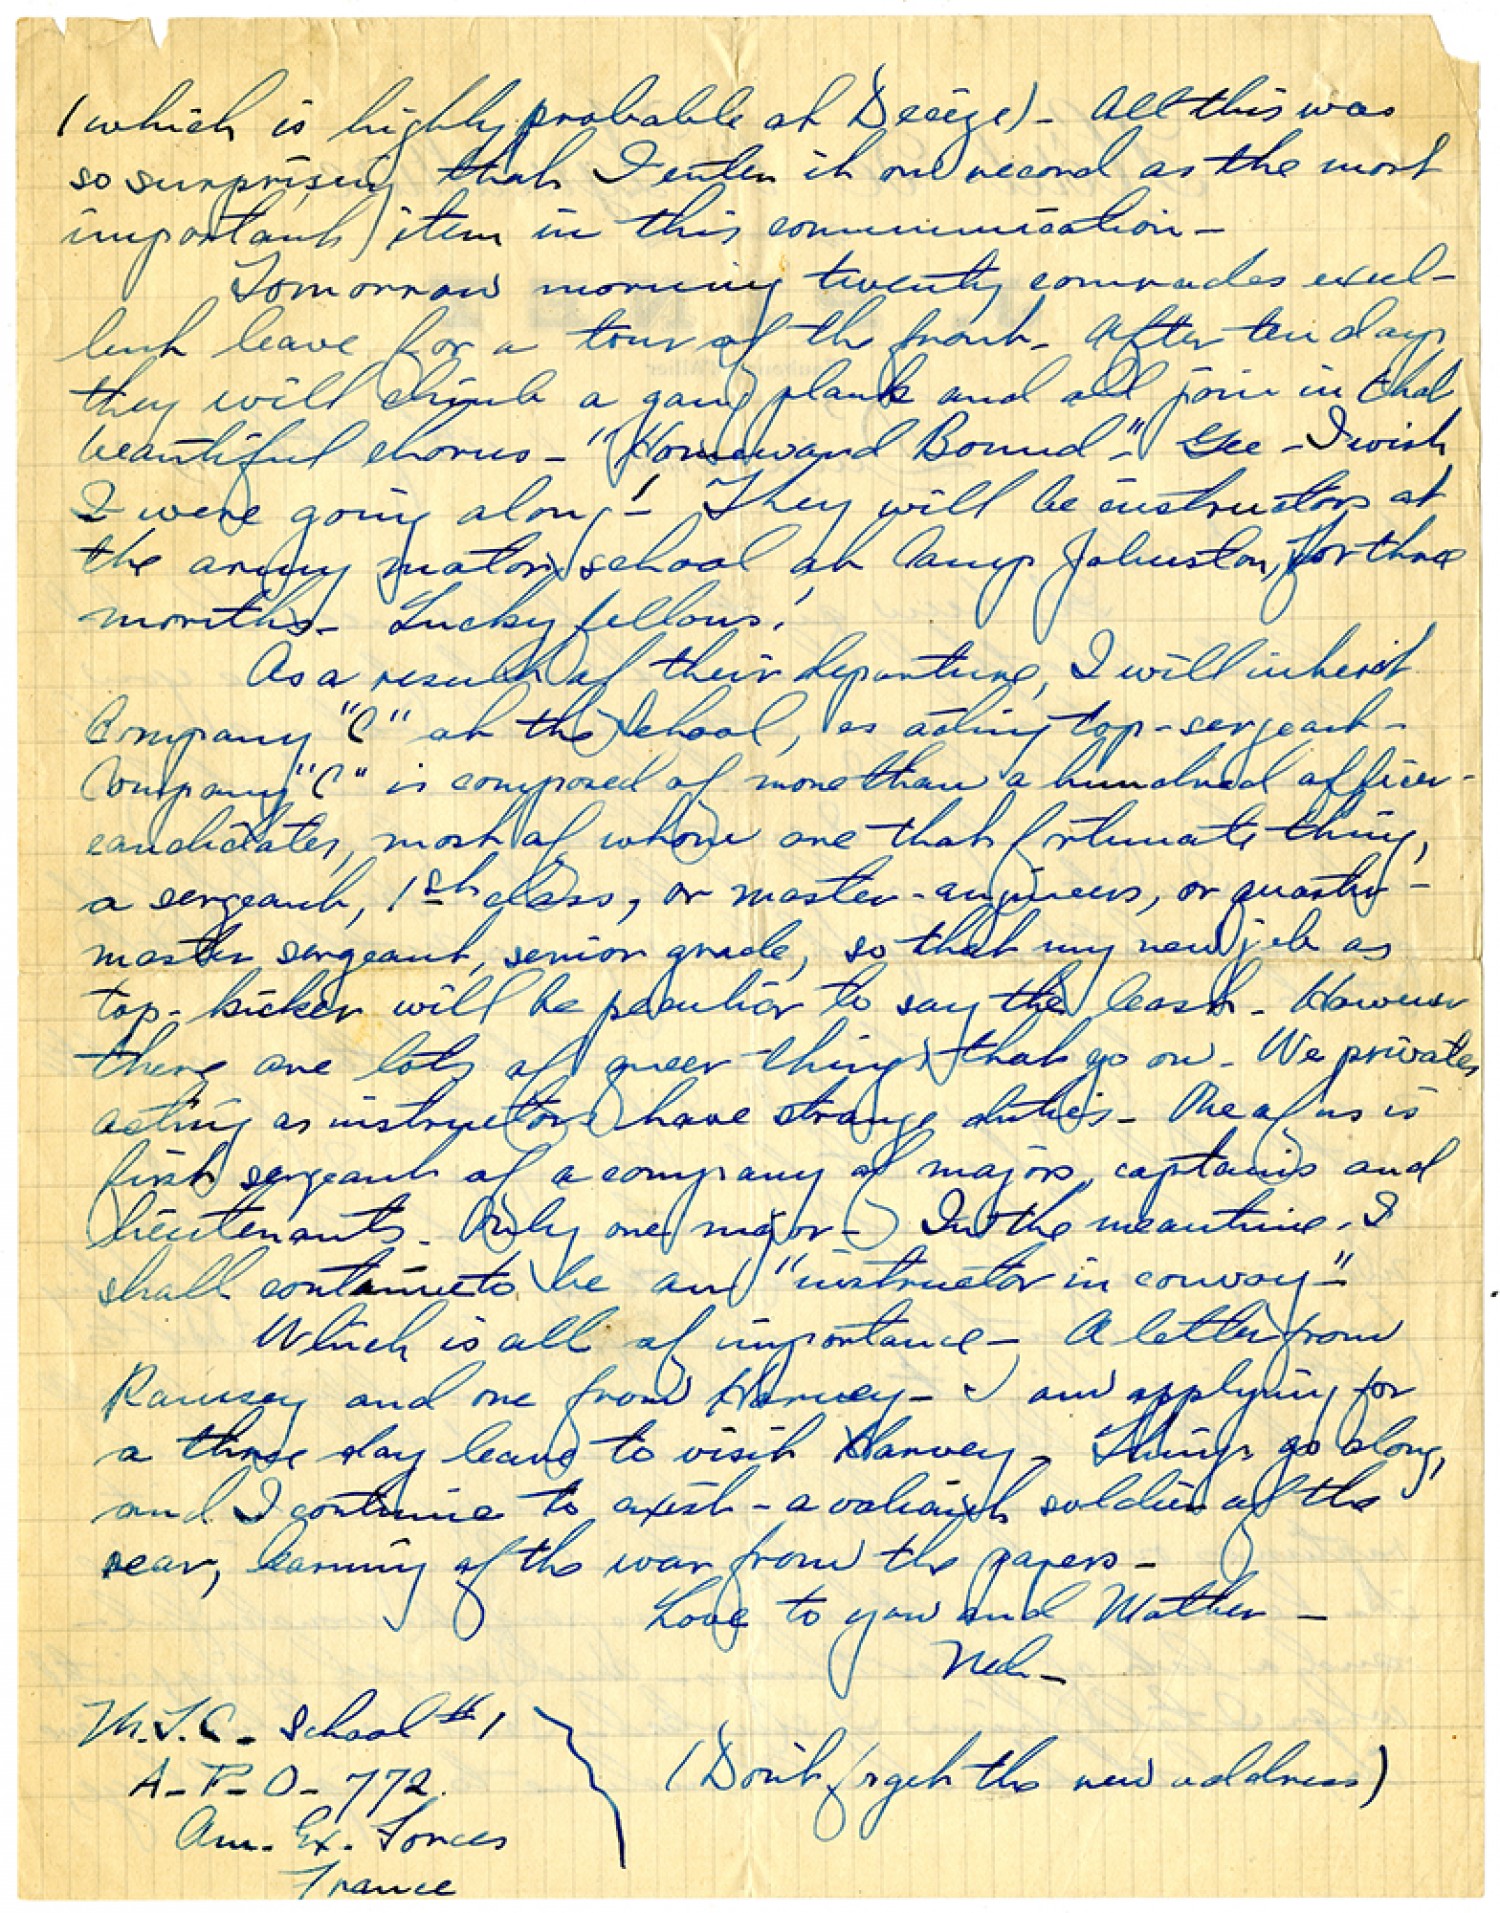 (which is highly probable at Decize) - All this was
so surprising that I enter it on record as the most
important item in this communication -
Tomorrow morning twenty comrades excel-
lent leave for a tour of the front - After ten days
they will climb a gang plank and all join in that
beautiful chorus - "Homeward Bound" - Gee - I wish
I were going along! They will be instructors at
the army motor school at Camp Johnston, for three
months - Lucky fellows!
As a result of their departure, I will inherit
Company "C" at the School, as acting top-sergeant -
Company "C" is composed of more than a hundred officer-
candidates, most of whom are that fortunate thing,
a sergeant, 1st class, or master-engineers, or quarter-
master sergeant, senior grade, so that my new job as
top-kicker will be peculiar to say the least - However
there are lots of queer things that go on - We privates
acting as instructors have strange duties - One of us is
first sergeant of a company of majors, captains and
lieutenants. Only one major - In the meantime, I
shall continue to be an "instructor in convoy" -
Which is all of importance - A letter from
Ramsey and one from Harvey - I am applying for
a three day leave to visit Harvey - Things go along,
and I continue to exist - a valiant soldier of the
rear, learning of the war from the papers -
Love to you and Mother -
Ned -
M.T.C. - School #1
A-P-O- 772.
Am. Ex. Forces
France
(Don't forget the new address)